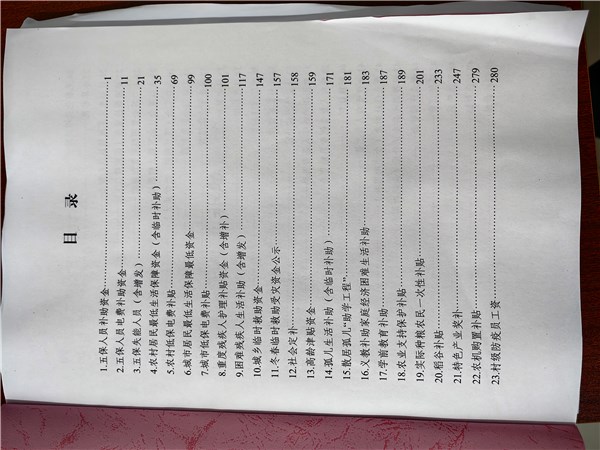 目 录
1.五保人员补助资金 1
2.五保人员电费补助资金 11
3.五保失能人员（含增发） 21
4.农村居民最低生活保障资金（含临时补助） 35
5.农村低保电费补贴 69
6.城市居民最低生活保障最低资金 99
7.城市低保电费补贴 100
8.重度残疾人护理补贴资金（含增补） 101
9.困难残疾人生活补助（含增发） 117
10.城乡临时救助资金 147
11.冬春临时救助受灾资金公示 157
12.社会定补 158
13.高龄津贴资金 159
14.孤儿生活补助（含临时补助） 171
15.散居孤儿“助学工程” 181
16.义教补助家庭经济困难生活补助 183
17.学前教育补助 187
18.农业支持保护补贴 189
19.实际种粮农民一次性补贴 201
20.稻谷补贴 233
21.特色产业奖补 247
22.农机购置补贴 279
23.村级防疫员工资 280